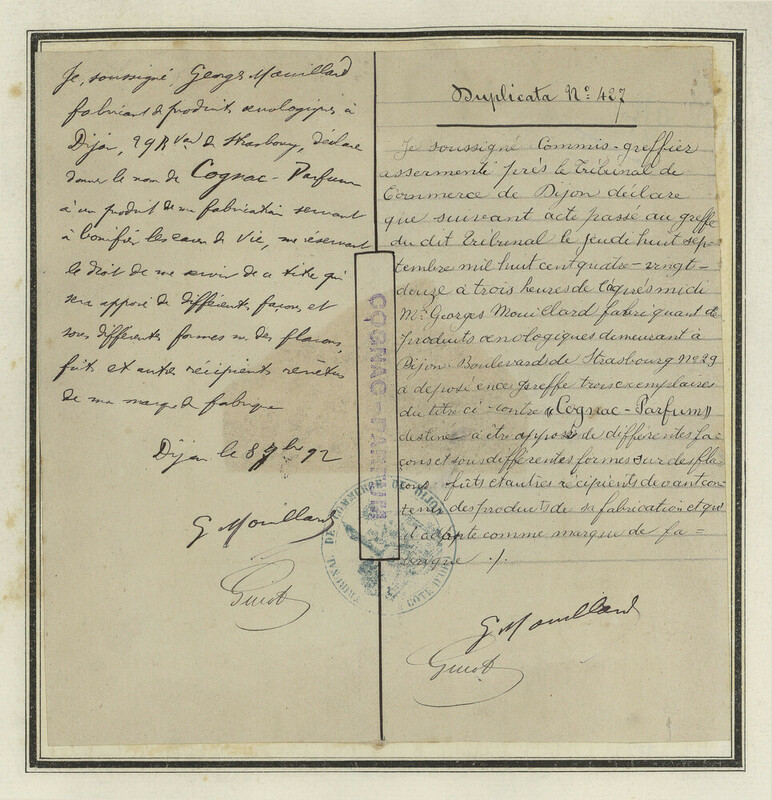 Je, soussigné Georges Mouillard
fabricant de produits œnologiques à
Dijon, 29 Bvard de Strasbourg, déclare
donner le nom de Cognac-Parfum
à un produit de ma fabrication servant
à bonifier les eaux de vie, me réservant
le droit de me servir de ce titre qui
sera apposé de différentes façons et
sous différentes formes sur des flacons,
fûts et autres récipients revêtus
de ma marque de fabrique
Dijon le 8 7bre 92
G Mouillard
Guiot
COGNAC-PARFUM
TRIBUNAL DE COMMERCE DE DIJON
CÔTE D'OR
Duplicata No 427
Je soussigné Commis-greffier
assermenté près le Tribunal de
Commerce de Dijon déclare
que suivant acte passé au greffe
du dit Tribunal le jeudi huit sep-
tembre mil huit cent quatre-vingt-
douze à trois heures de l'après midi
Mr Georges Mouillard fabriquant de
produits œnologiques demeurant à
Dijon Boulevard de Strasbourg No 29
a déposé en ce greffe trois exemplaires
du titre ci-contre «Cognac-Parfum»
destiné à être apposé de différentes fa-
çons et sous différentes formes sur des fla-
cons fûts et autres récipients devant con-
tenir des produits de sa fabrication et qu'
il adopte comme marque de fa-
brique ./.
G Mouillard
Guiot